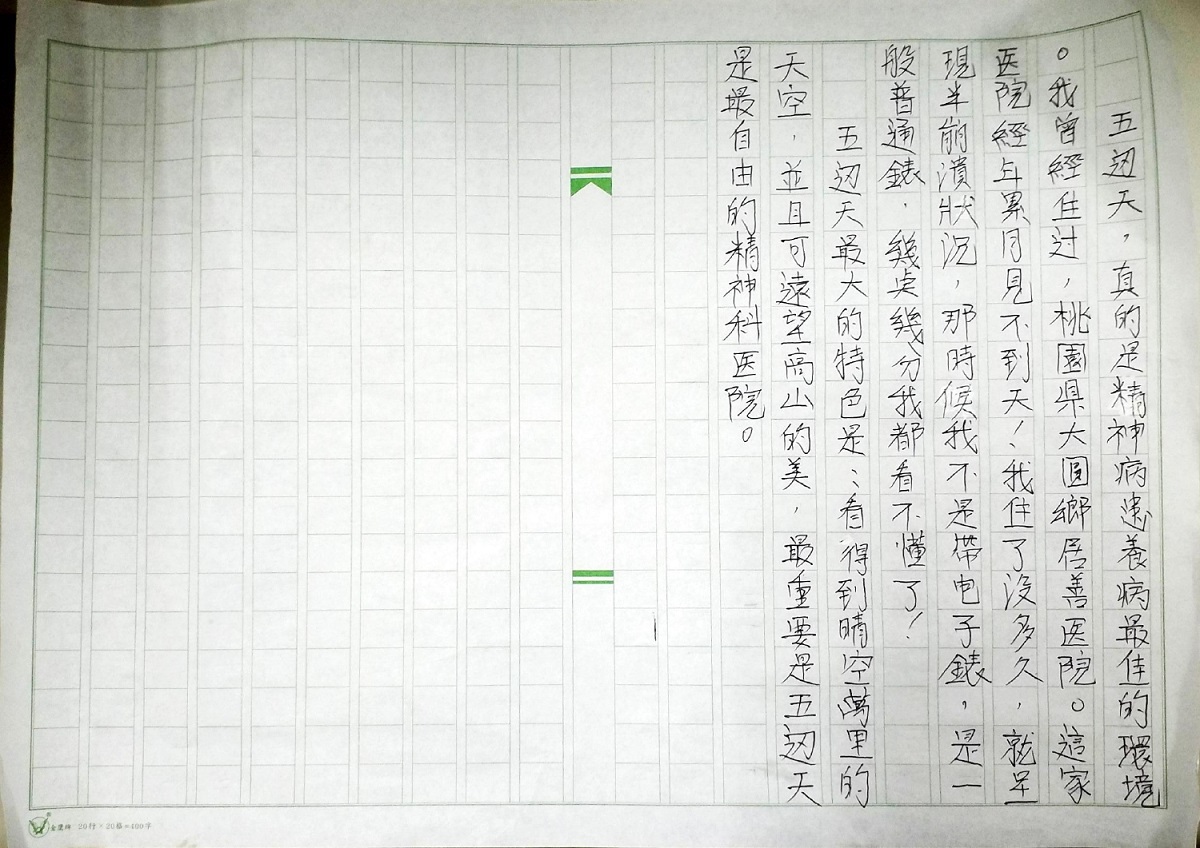 五边天，真的是精神病患養病最佳的環境
。我曾經住过，桃園県大圓鄉居善医院。這家
医院經年累月見不到天！我住了沒多久，就呈
現半崩潰狀況，那時候我不是帶电子錶，是一
般普通錶，幾点幾分我都看不懂了！
五边天最大的特色是：看得到晴空萬里的
天空，並且可遠望高山的美，最重要是五边天
是最自由的精神科医院。
20行×20格=400字